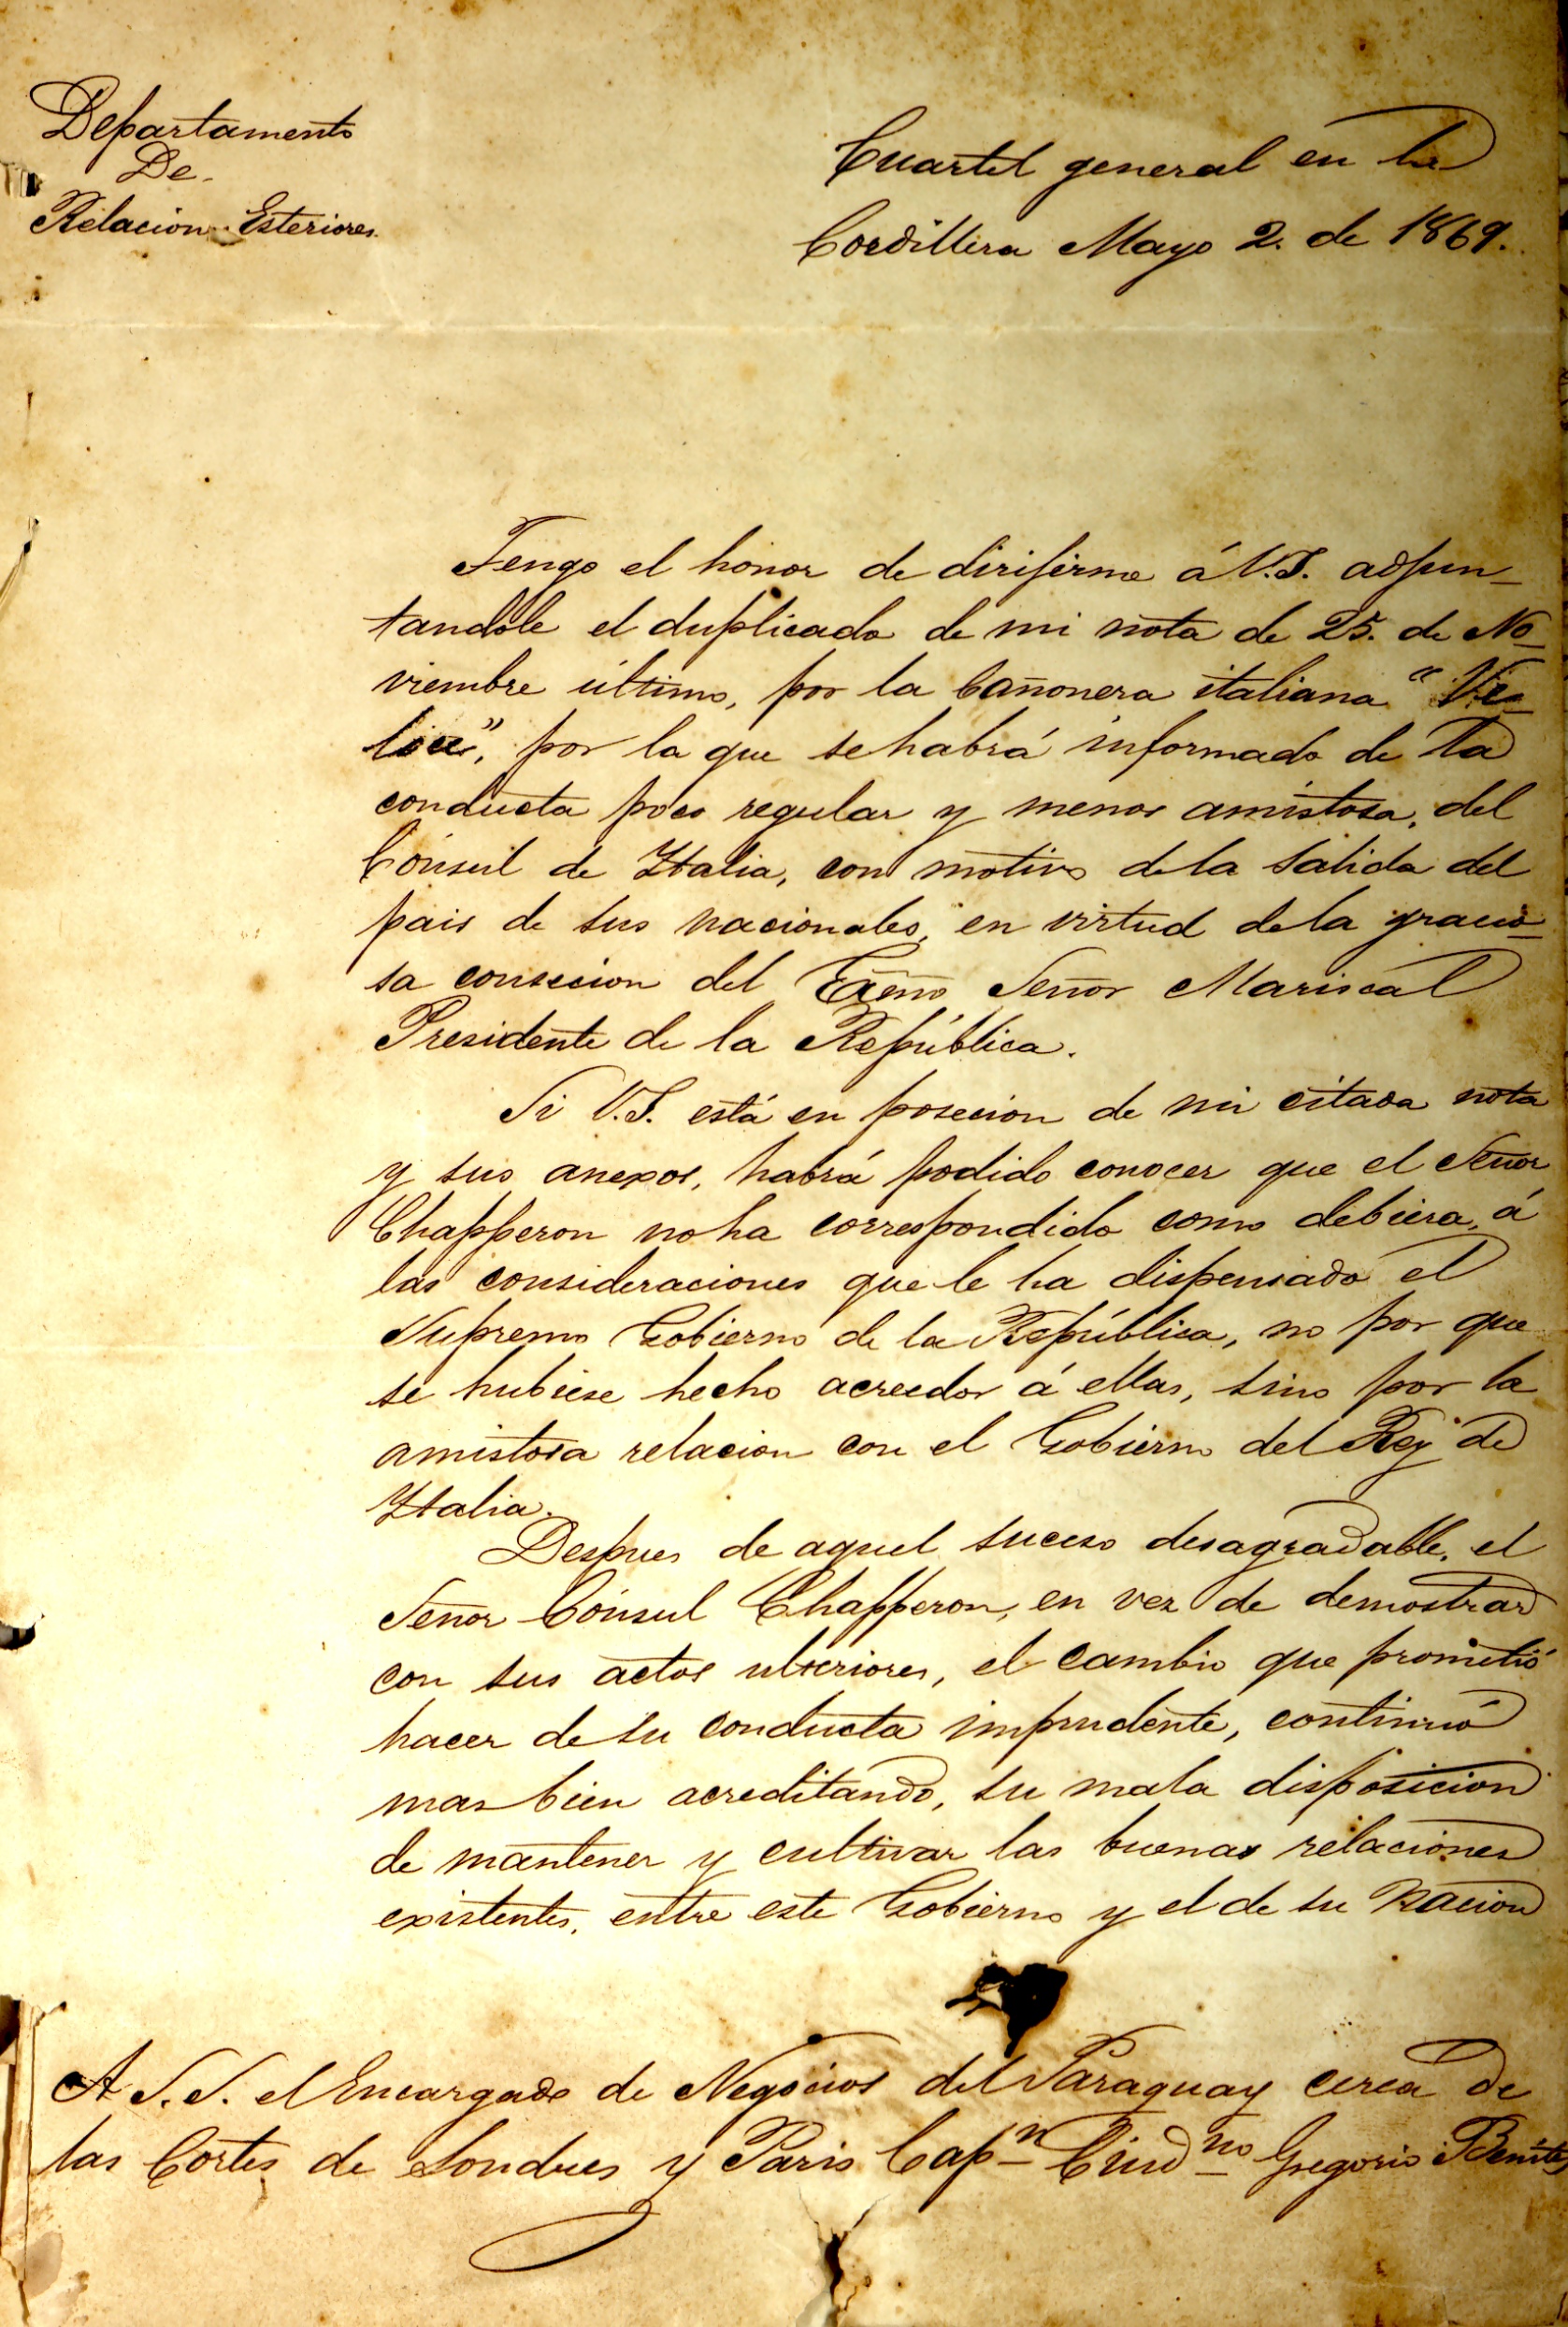 Departamento
De
Relacion Esteriores.
Cuartel general en la
Cordillera Mayo 2. de 1869.
Tengo el honor de dirijirme á V.S. adjun-
tandole el duplicado de mi nota de 25. de No-
viembre último, por la Cañonera italiana "Ve-
loce", por la que se habrá informado de la
conducta poco regular y menos amistosa, del
Cónsul de Italia, con motivo de la salida del
pais de sus nacionales, en virtud de la gracio-
sa consecion del Exmo Señor Mariscal
Presidente de la República.
Si V.S. está en posecion de mi citada nota
y sus anexos, habrá podido conocer que el Señor
Chapperon no ha correspondido como debiera, á
las consideraciones que le ha dispensado el
Supremo Gobierno de la República, no por que
se hubiese hecho acreedor á ellas, sino por la
amistosa relacion con el Gobierno del Rey de
Italia.
Despues de aquel suceso desagradable, el
Señor Cónsul Chapperon, en vez de demostrar
con sus actos ulteriores, el cambio que prometió
hacer de su conducta imprudente, continuó
mas bien acreditando, su mala disposicion
de mantener y cultivar las buenas relaciones
existentes, entre este Gobierno y el de su Nacion
A S.S. el Encargado de Negocios del Paraguay cerca de
las Cortes de Londres y Paris Capn Ciudno Gregorio Benites